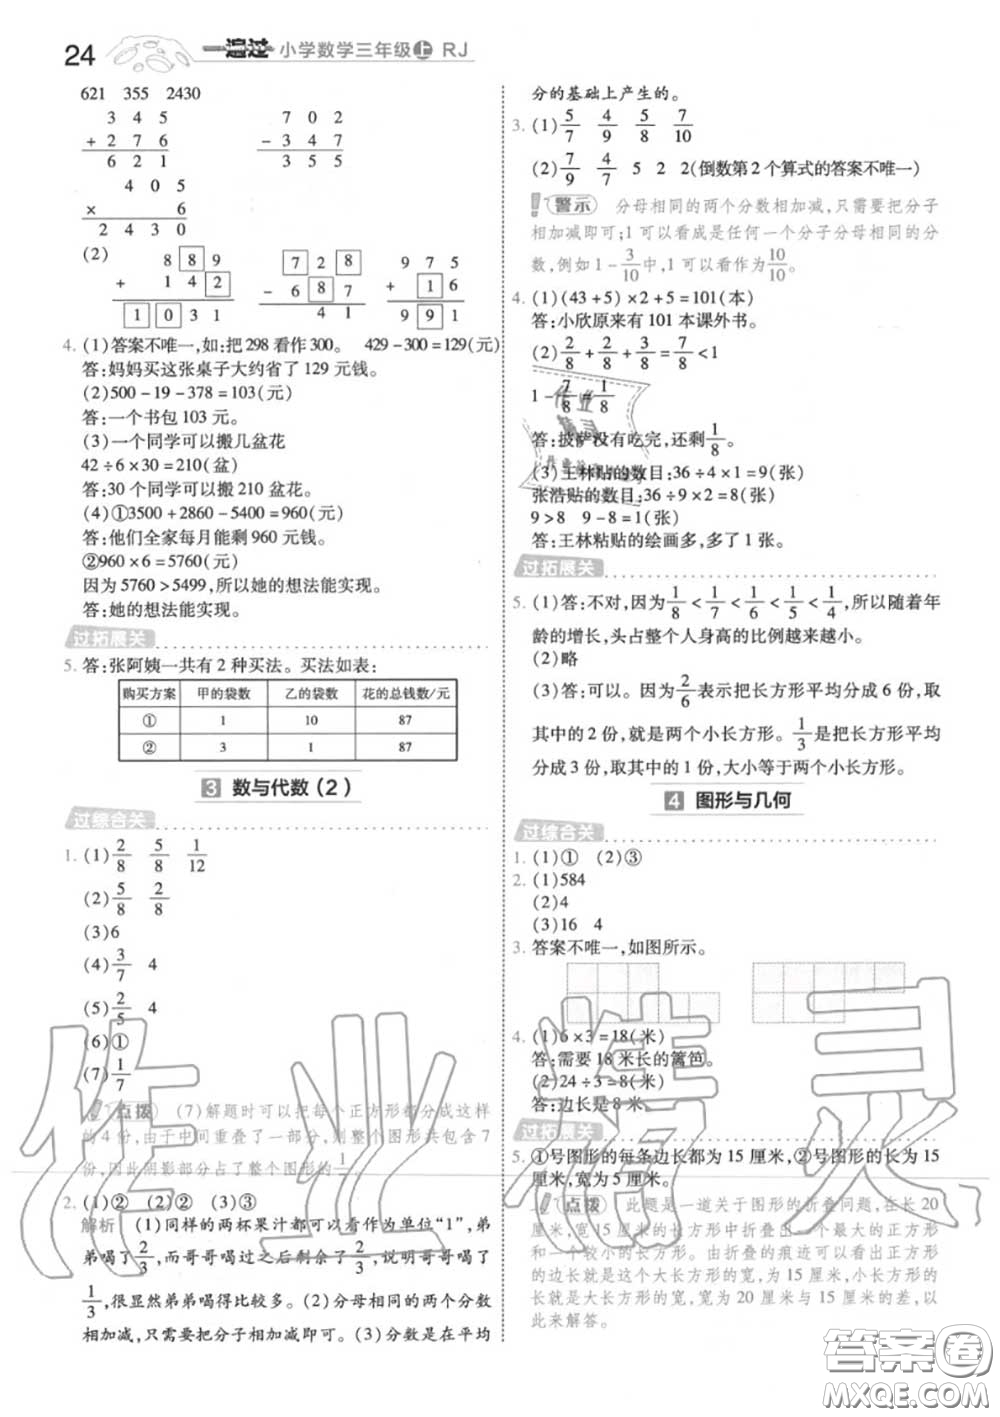 24 一遍过 小学数学三年级上 RJ
621 355 2430
3 4 5
+ 2 7 6
6 2 1
7 0 2
- 3 4 7
3 5 5
4 0 5
× 6
2 4 3 0
(2)
8 8 9
+ 1 4 2
1 0 3 1
7 2 8
- 6 8 7
4 1
9 7 5
+ 1 6
9 9 1
4. (1)答案不唯一,如:把 298 看作 300。 429-300=129(元)
答:妈妈买这张桌子大约省了 129 元钱。
(2)500-19-378=103(元)
答:一个书包 103 元。
(3)一个同学可以搬几盆花
42÷6×30=210(盆)
答:30 个同学可以搬 210 盆花。
(4)①3500+2860-5400=960(元)
答:他们全家每月能剩 960 元钱。
②960×6=5760(元)
因为 5760>5499,所以她的想法能实现。
答:她的想法能实现。
过拓展关
5. 答:张阿姨一共有 2 种买法。买法如表:
购买方案 甲的袋数 乙的袋数 花的总钱数/元
① 1 10 87
② 3 1 87
3 数与代数(2)
过综合关
1. (1) 2/8 5/8 1/12
(2) 5/8 2/8
(3)6
(4) 3/7 4
(5) 2/5 4
(6)①
(7) 1/7
点拨 (7)解题时可以把每个正方形都分成这样
的 4 份,由于中间重叠了一部分,则整个图形共包含 7
份,因此阴影部分占了整个图形的 1/7。
2. (1)② (2)② (3)③
解析 (1)同样的两杯果汁都可以看作为单位“1”,弟
弟喝了 2/3,而哥哥喝过之后剩余了 2/3,说明哥哥喝了
1/3,很显然弟弟喝得比较多。(2)分母相同的两个分数
相加减,只需要把分子相加减即可。(3)分数是在平均
分的基础上产生的。
3. (1) 5/7 4/9 5/8 7/10
(2) 7/9 4/7 5 2 2(倒数第 2 个算式的答案不唯一)
警示 分母相同的两个分数相加减,只需要把分子
相加减即可;1 可以看成是任何一个分子分母相同的分
数,例如 1-3/10 中,1 可以看作为 10/10。
4. (1)(43+5)×2+5=101(本)
答:小欣原来有 101 本课外书。
(2) 2/8+2/8+3/8=7/8<1
1-7/8=1/8
答:披萨没有吃完,还剩 1/8。
(3)王林贴的数目:36÷4×1=9(张)
张浩贴的数目:36÷9×2=8(张)
9>8 9-8=1(张)
答:王林粘贴的绘画多,多了 1 张。
过拓展关
5. (1)答:不对,因为 1/8<1/7<1/6<1/5<1/4,所以随着年
龄的增长,头占整个人身高的比例越来越小。
(2)略
(3)答:可以。因为 2/6 表示把长方形平均分成 6 份,取
其中的 2 份,就是两个小长方形。1/3 是把长方形平均
分成 3 份,取其中的 1 份,大小等于两个小长方形。
4 图形与几何
过综合关
1. (1)① (2)③
2. (1)584
(2)4
(3)16 4
3. 答案不唯一,如图所示。
4. (1)6×3=18(米)
答:需要 18 米长的篱笆。
(2)24÷3=8(米)
答:边长是 8 米。
过拓展关
5. ①号图形的每条边长都为 15 厘米,②号图形的长为 15
厘米,宽为 5 厘米。
点拨 此题是一道关于图形的折叠问题,在长 20
厘米,宽 15 厘米的长方形中折叠出一个最大的正方形
和一个较小的长方形。由折叠的痕迹可以看出正方形
的边长就是这个大长方形的宽,为 15 厘米,小长方形的长
就是大长方形的宽,宽为 20 厘米与 15 厘米的差,以
此来解答。
作业精灵
答案圈
MXQE.COM